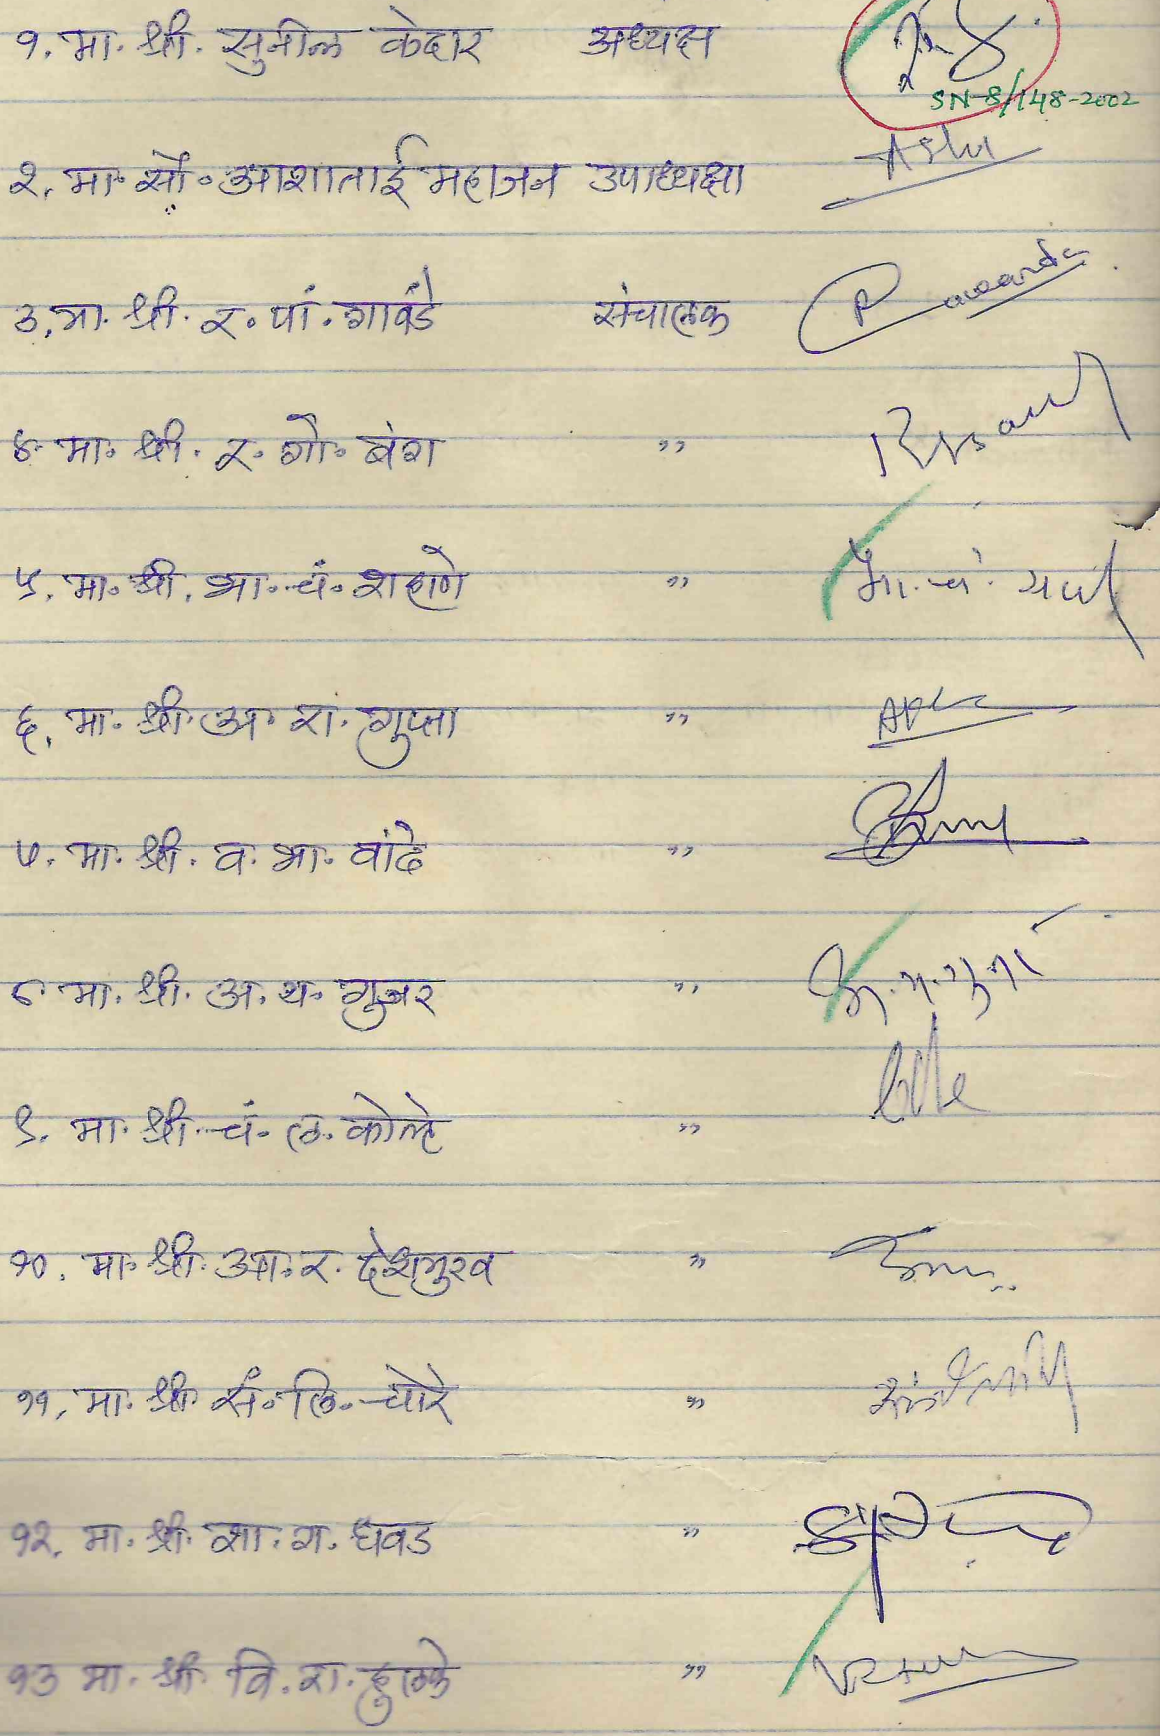 १. मा. श्री. सुनील केदार अध्यक्ष
SN-8/148-2002
२. मा. सौ. आशाताई महाजन उपाध्यक्षा Asha
३. मा. श्री. र. पां. गावंडे संचालक
४. मा. श्री. र. गो. बंग ,,
५. मा. श्री. भा. चं. शहाणे ,, भा. चं.
६. मा. श्री. अ. रा. गुप्ता ,,
७. मा. श्री. व. भा. वांदे ,,
८. मा. श्री. अ. य. गुजर ,,
९. मा. श्री. चं. ल. कोल्हे ,,
१०. मा. श्री. आ. र. देशमुख ,,
११. मा. श्री. सं. लि. चोरे ,,
१२. मा. श्री. शा. ग. धवड ,,
१३ मा. श्री. वि. रा. हुलके ,,